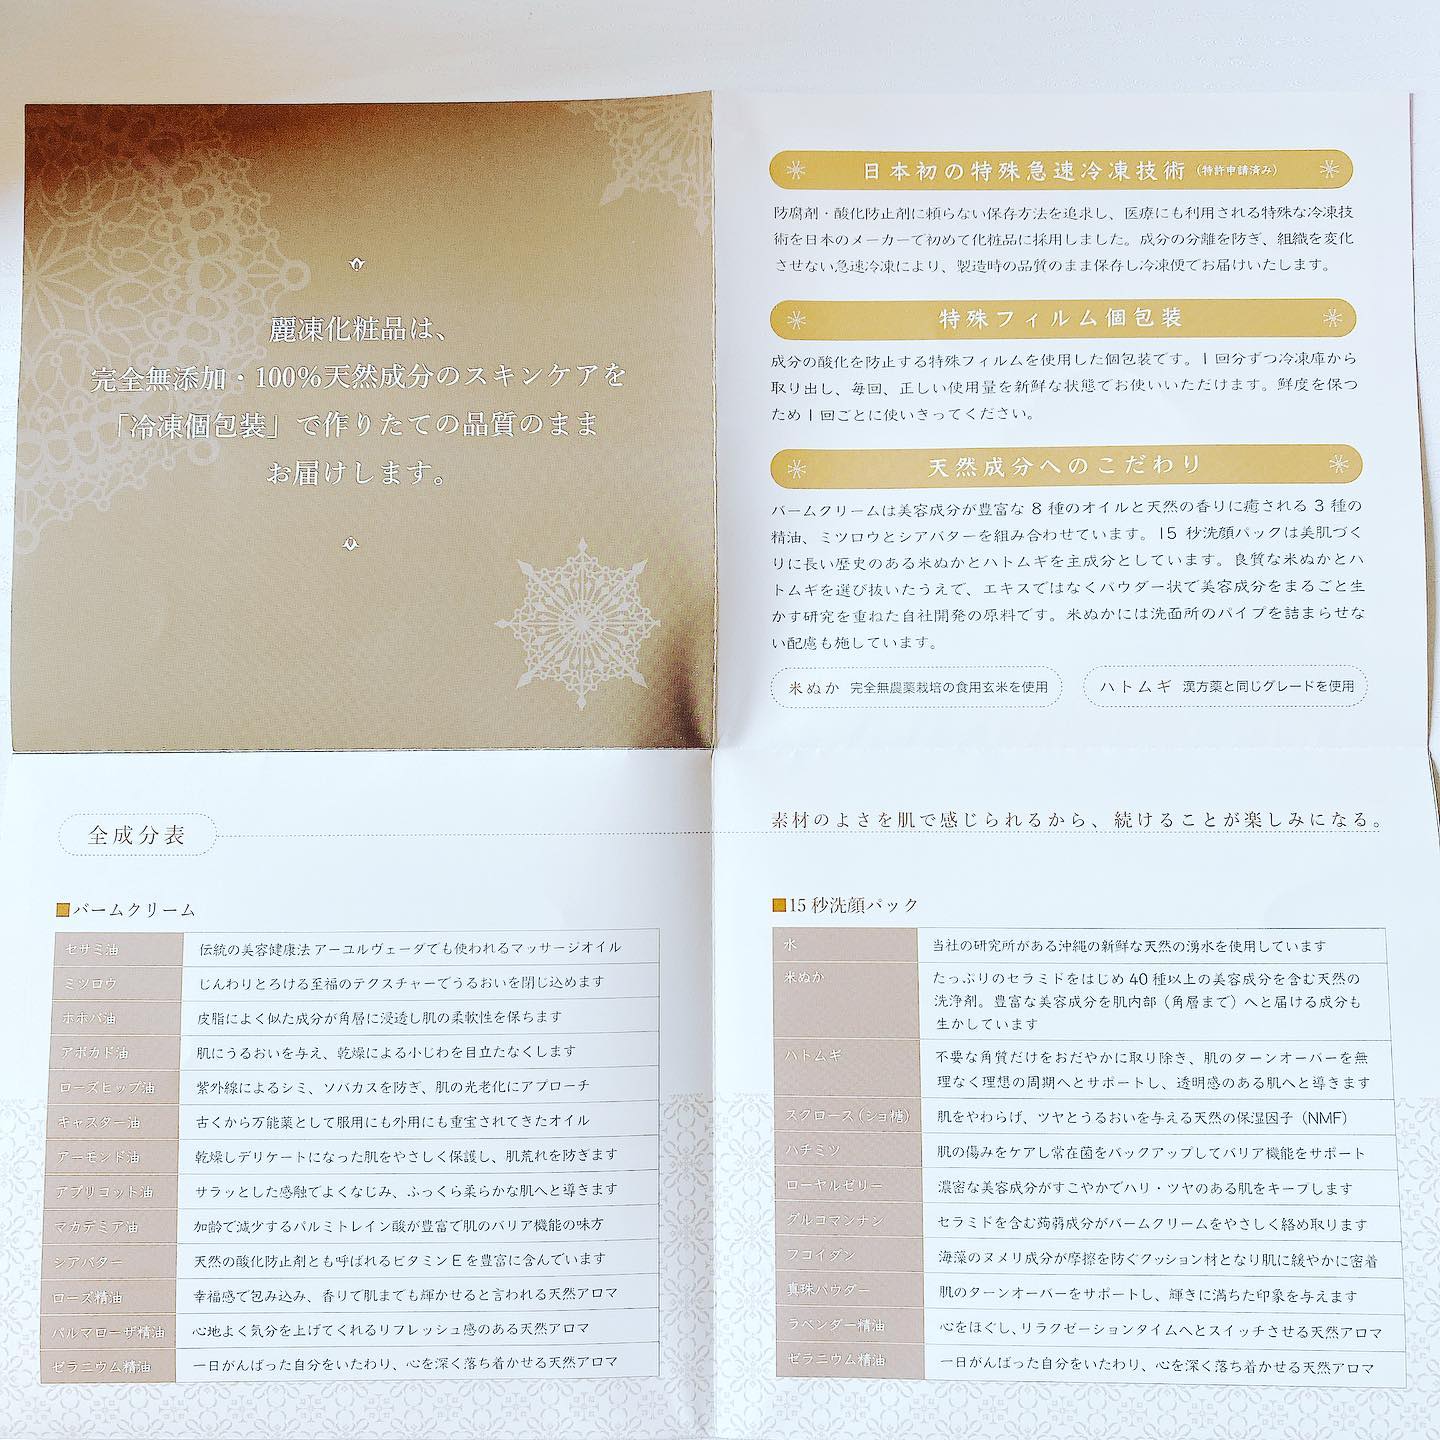 麗凍化粧品は、
完全無添加・100%天然成分のスキンケアを
「冷凍個包装」で作りたての品質のまま
お届けします。
日本初の特殊急速冷凍技術(特許申請済み)
防腐剤・酸化防止剤に頼らない保存方法を追求し、医療にも利用される特殊な冷凍技
術を日本のメーカーで初めて化粧品に採用しました。成分の分離を防ぎ、組織を変化
させない急速冷凍により、製造時の品質のまま保存し冷凍便でお届けいたします。
特殊フィルム個包装
成分の酸化を防止する特殊フィルムを使用した個包装です。1回分ずつ冷凍庫から
取り出し、毎回、正しい使用量を新鮮な状態でお使いいただけます。鮮度を保つ
ため1回ごとに使いきってください。
天然成分へのこだわり
バームクリームは美容成分が豊富な8種のオイルと天然の香りに癒される3種の
精油、ミツロウとシアバターを組み合わせています。15秒洗顔パックは美肌づく
りに長い歴史のある米ぬかとハトムギを主成分としています。良質な米ぬかとハ
トムギを選び抜いたうえで、エキスではなくパウダー状で美容成分をまるごと生
かす研究を重ねた自社開発の原料です。米ぬかには洗面所のパイプを詰まらせな
い配慮も施しています。
米ぬか 完全無農薬栽培の食用玄米を使用
ハトムギ 漢方薬と同じグレードを使用
全成分表
素材のよさを肌で感じられるから、続けることが楽しみになる。
■バームクリーム
セサミ油 伝統の美容健康法アーユルヴェーダでも使われるマッサージオイル
ミツロウ じんわりとろける至福のテクスチャーでうるおいを閉じ込めます
ホホバ油 皮脂によく似た成分が角層に浸透し肌の柔軟性を保ちます
アボカド油 肌にうるおいを与え、乾燥による小じわを目立たなくします
ローズヒップ油 紫外線によるシミ、ソバカスを防ぎ、肌の光老化にアプローチ
キャスター油 古くから万能薬として服用にも外用にも重宝されてきたオイル
アーモンド油 乾燥しデリケートになった肌をやさしく保護し、肌荒れを防ぎます
アプリコット油 サラッとした感触でよくなじみ、ふっくら柔らかな肌へと導きます
マカデミア油 加齢で減少するパルミトレイン酸が豊富で肌のバリア機能の味方
シアバター 天然の酸化防止剤とも呼ばれるビタミンEを豊富に含んでいます
ローズ精油 幸福感で包み込み、香りで肌までも輝かせると言われる天然アロマ
パルマローザ精油 心地よく気分を上げてくれるリフレッシュ感のある天然アロマ
ゼラニウム精油 一日がんばった自分をいたわり、心を深く落ち着かせる天然アロマ
■15秒洗顔パック
水 当社の研究所がある沖縄の新鮮な天然の湧水を使用しています
米ぬか たっぷりのセラミドをはじめ40種以上の美容成分を含む天然の
洗浄剤。豊富な美容成分を肌内部(角層まで)へと届ける成分も
生かしています
ハトムギ 不要な角質だけをおだやかに取り除き、肌のターンオーバーを無
理なく理想の周期へとサポートし、透明感のある肌へと導きます
スクロース(ショ糖) 肌をやわらげ、ツヤとうるおいを与える天然の保湿因子(NMF)
ハチミツ 肌の傷みをケアし常在菌をバックアップしてバリア機能をサポート
ローヤルゼリー 濃密な美容成分がすこやかでハリ・ツヤのある肌をキープします
グルコマンナン セラミドを含む蒟蒻成分がバームクリームをやさしく絡め取ります
フコイダン 海藻のヌメリ成分が摩擦を防ぐクッション材となり肌に緩やかに密着
真珠パウダー 肌のターンオーバーをサポートし、輝きに満ちた印象を与えます
ラベンダー精油 心をほぐし、リラクゼーションタイムへとスイッチさせる天然アロマ
ゼラニウム精油 一日がんばった自分をいたわり、心を深く落ち着かせる天然アロマ